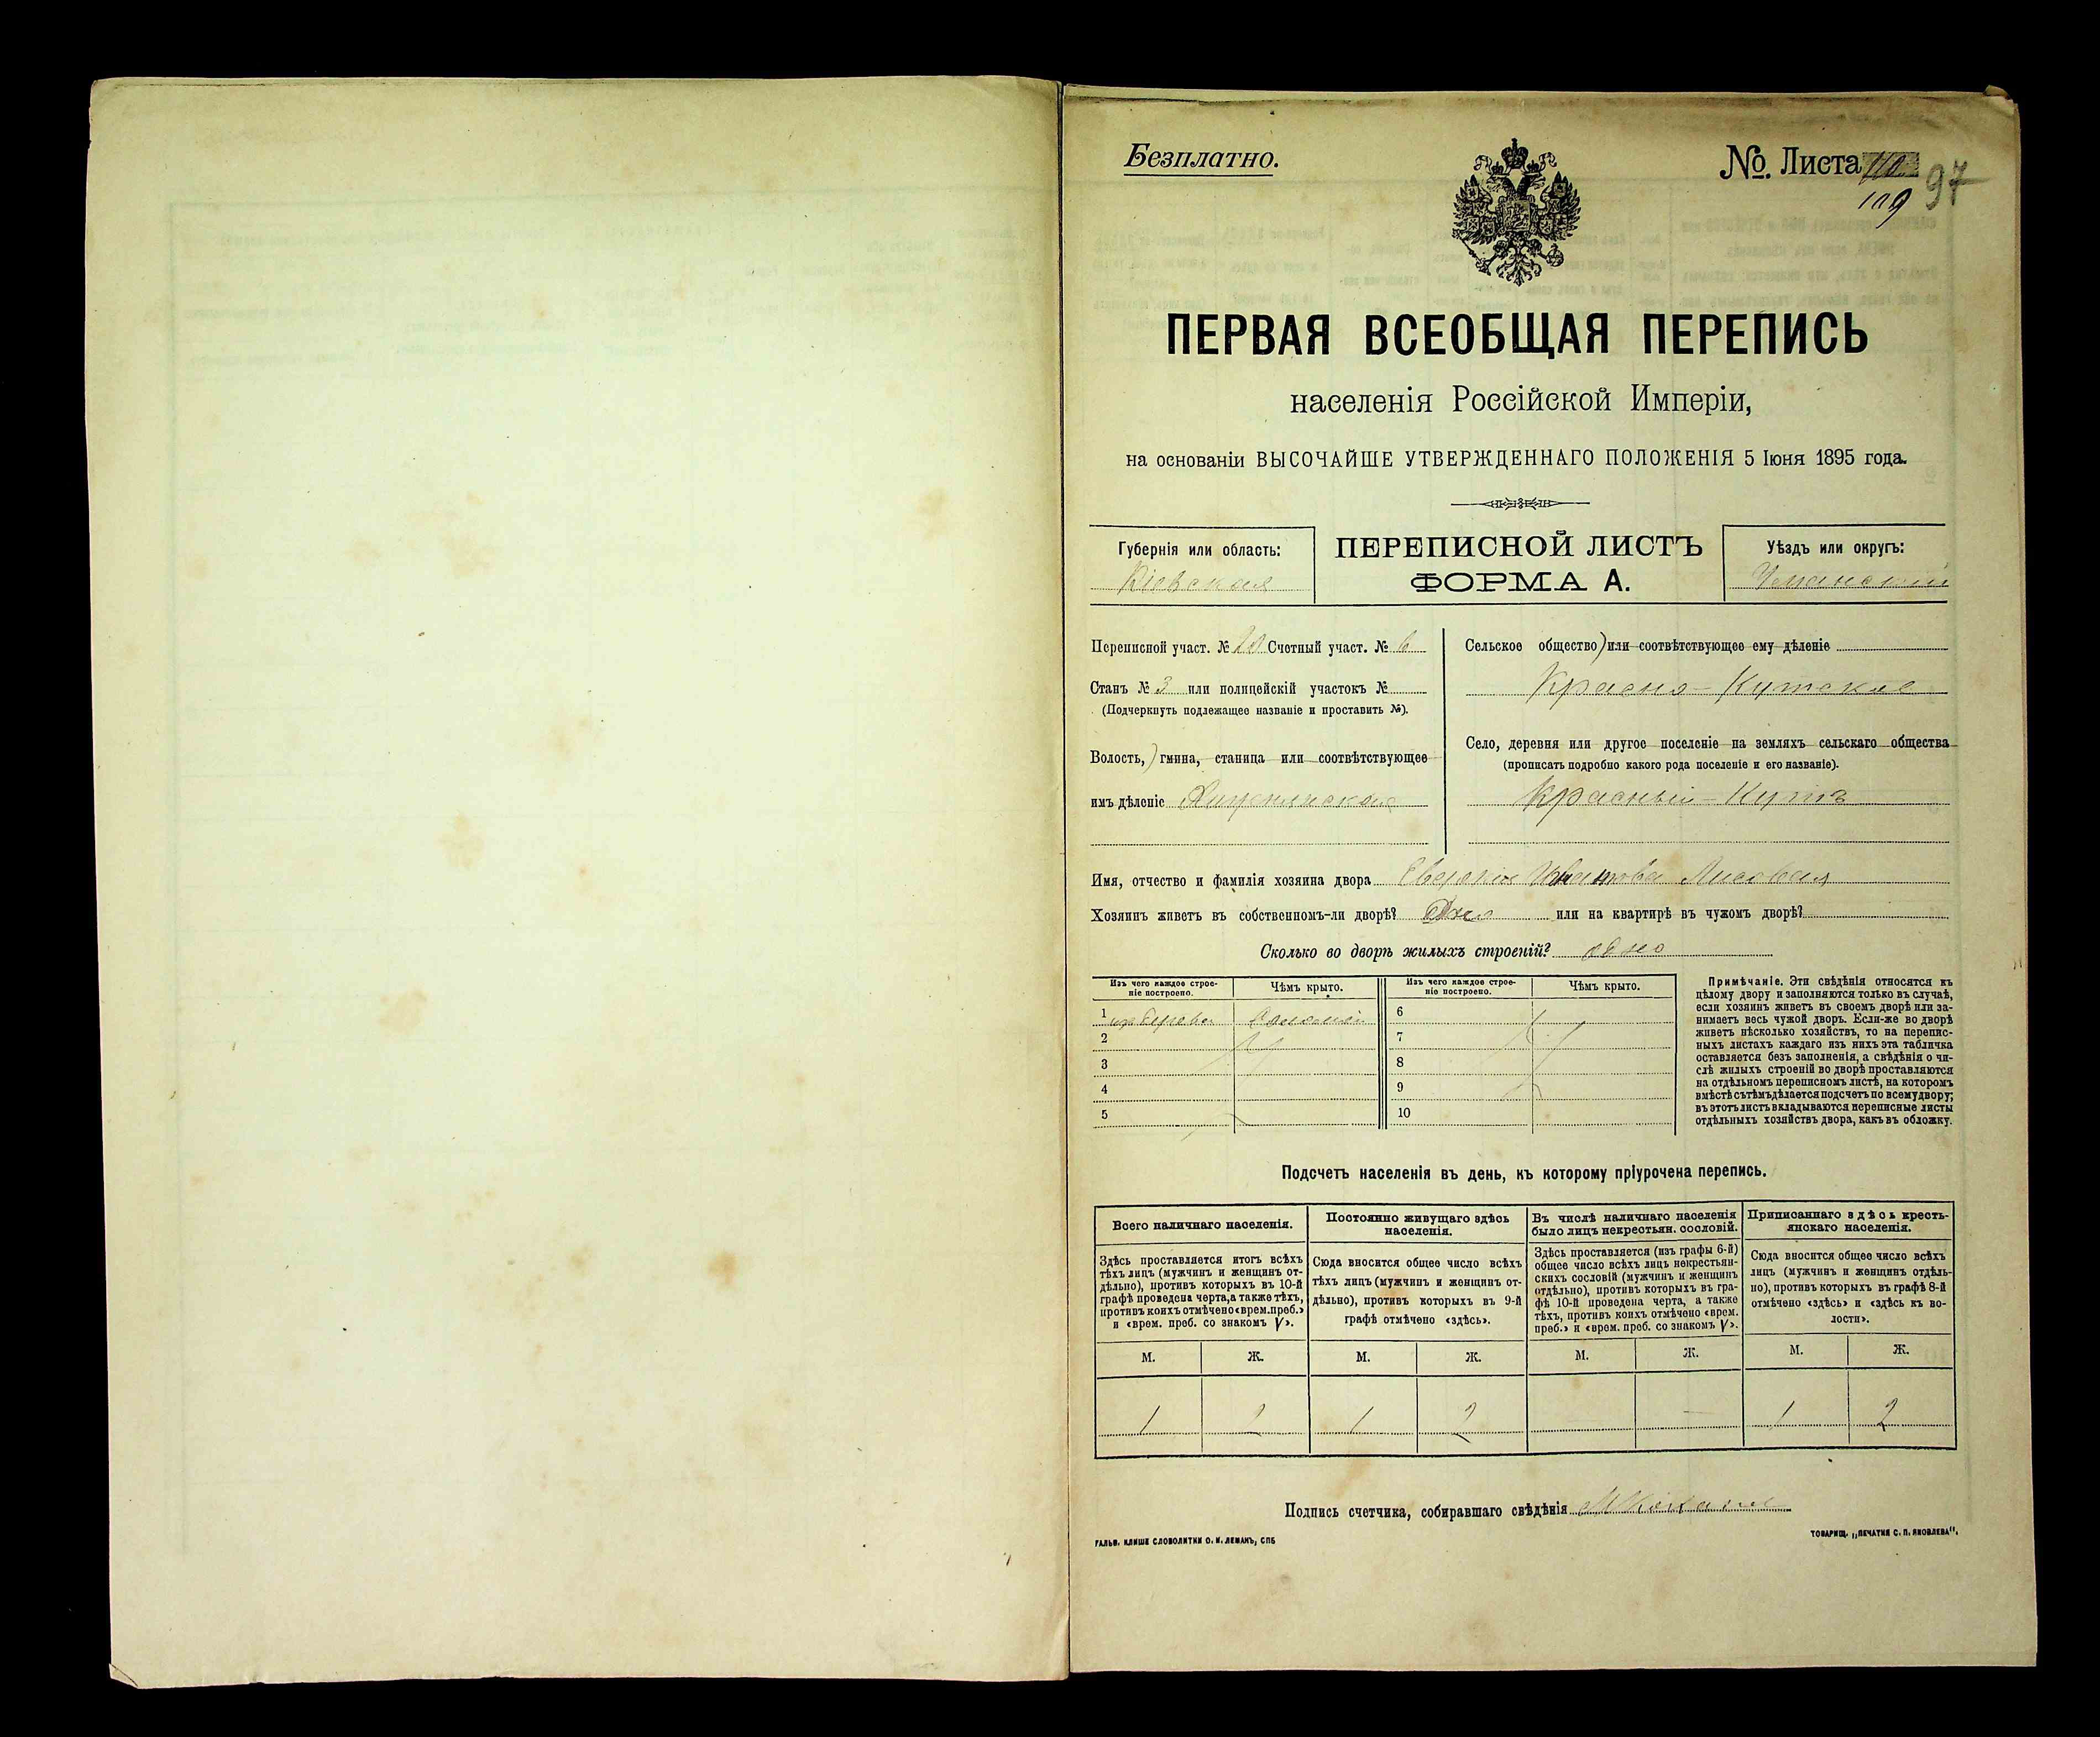 Безплатно.
№ Листа 110
109
97
ПЕРВАЯ ВСЕОБЩАЯ ПЕРЕПИСЬ
населенія Россійской Имперіи,
на основаніи ВЫСОЧАЙШЕ УТВЕРЖДЕННАГО ПОЛОЖЕНІЯ 5 Іюня 1895 года.
Губернія или область:
Кіевская
ПЕРЕПИСНОЙ ЛИСТЪ
ФОРМА А.
Уѣздъ или округъ:
Уманскій
Переписной участ. № 20 Счетный участ. № 6
Станъ № 3 или полицейскій участокъ №
(Подчеркнуть подлежащее названіе и проставить №).
Волость,) гмина, станица или соотвѣтствующее
имъ дѣленіе
Сельское общество) или соотвѣтствующее ему дѣленіе
Красно-Кутское
Село, деревня или другое поселеніе на земляхъ сельскаго общества
(прописать подробно какого рода поселеніе и его названіе).
Красный-Кутъ
Имя, отчество и фамилія хозяина двора Лисовая
Хозяинъ живетъ въ собственномъ-ли дворѣ? или на квартирѣ въ чужомъ дворѣ?
Сколько во дворѣ жилыхъ строеній? одно
Изъ чего каждое строе-
ніе построено.
Чѣмъ крыто.
1 изъ дерева Соломой
2
3
4
5
Изъ чего каждое строе-
ніе построено.
Чѣмъ крыто.
6
7
8
9
10
Примѣчаніе. Эти свѣдѣнія относятся къ
цѣлому двору и заполняются только въ случаѣ,
если хозяинъ живетъ въ своемъ дворѣ или за-
нимаетъ весь чужой дворъ. Если-же во дворѣ
живетъ нѣсколько хозяйствъ, то на перепис-
ныхъ листахъ каждаго изъ нихъ эта табличка
оставляется безъ заполненія, а свѣдѣнія о чи-
слѣ жилыхъ строеній во дворѣ проставляются
на отдѣльномъ переписномъ листѣ, на которомъ
вмѣстѣ съ тѣмъ дѣлается подсчетъ по всему двору;
въ этотъ листъ вкладываются переписные листы
отдѣльныхъ хозяйствъ двора, какъ въ обложку.
Подсчетъ населенія въ день, къ которому пріурочена перепись.
Всего наличнаго населенія.
Здѣсь проставляется итогъ всѣхъ
тѣхъ лицъ (мужчинъ и женщинъ от-
дѣльно), противъ которыхъ въ 10-й
графѣ проведена черта, а также тѣхъ,
противъ коихъ отмѣчено «врем. преб.»
и «врем. преб. со знакомъ V».
М. Ж.
1 2
Постоянно живущаго здѣсь
населенія.
Сюда вносится общее число всѣхъ
тѣхъ лицъ (мужчинъ и женщинъ от-
дѣльно), противъ которыхъ въ 9-й
графѣ отмѣчено «здѣсь».
М. Ж.
1 2
Въ числѣ наличнаго населенія
было лицъ некрестьян. сословій.
Здѣсь проставляется (изъ графы 6-й)
общее число всѣхъ лицъ некрестьян-
скихъ сословій (мужчинъ и женщинъ
отдѣльно), противъ которыхъ въ гра-
фѣ 10-й проведена черта, а также
тѣхъ, противъ коихъ отмѣчено «врем.
преб.» и «врем. преб. со знакомъ V».
М. Ж.
— —
Приписаннаго здѣсь кресть-
янскаго населенія.
Сюда вносится общее число всѣхъ
лицъ (мужчинъ и женщинъ отдѣль-
но), противъ которыхъ въ графѣ 8-й
отмѣчено «здѣсь» и «здѣсь къ во-
лости».
М. Ж.
1 2
Подпись счетчика, собиравшаго свѣдѣнія
ГАЛЬВ. КЛИШЕ СЛОВОЛИТНИ О. И. ЛЕМАНЪ, СПБ
ТОВАРИЩ. „ПЕЧАТНЯ С. П. ЯКОВЛЕВА".